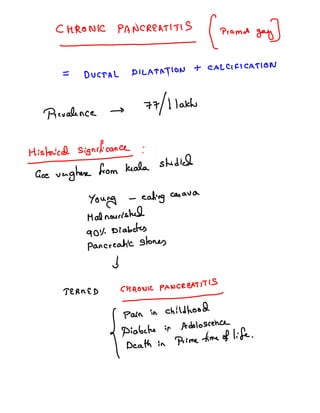 CHRONIC PANCREATITIS
= DUCTAL DILATATION + CALCIFICATION
Prevalence → 77/1 lakh
Historical Significance :
Gee verghese from kerala studied
Young – eating casava
Malnourished
90% Diabetes
Pancreatic stones
↓
TERMED CHRONIC PANCREATITIS
Pain in childhood
Diabetes in Adoloscence
Death in Prime time of life.